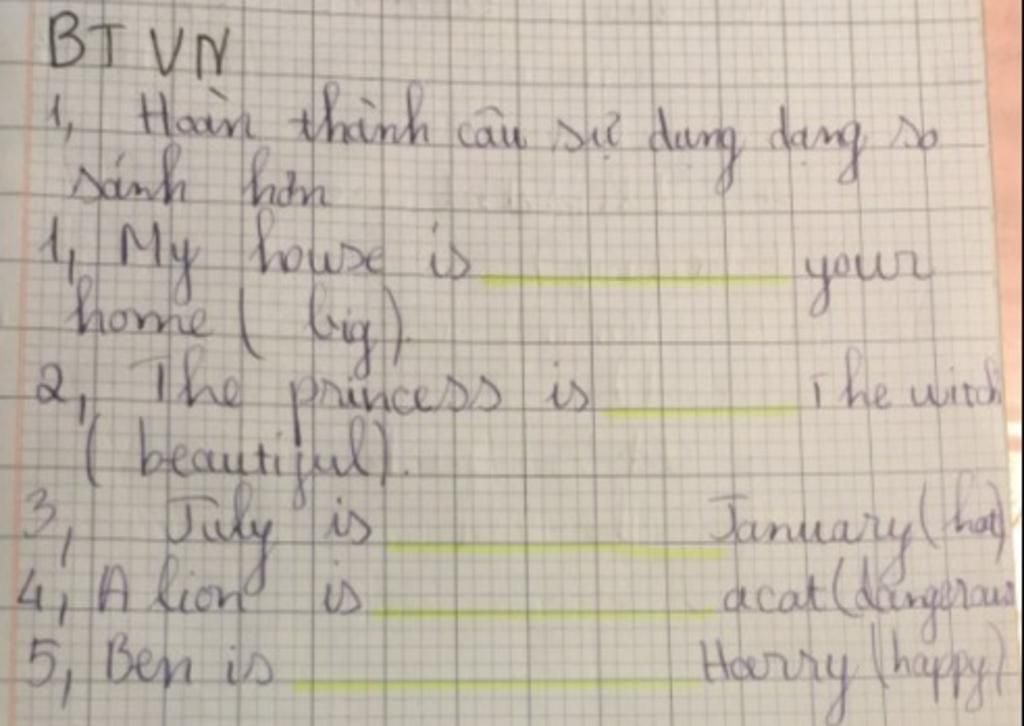 BTVN
1, Hoàn thành câu sử dụng dạng so
sánh hơn
1, My house is __________ your
home ( big).
2, The princess is ______ The witch
( beautiful).
3, July is __________ January (hot)
4, A lion is __________ a cat (dangerous
5, Ben is __________ Harry (happy)